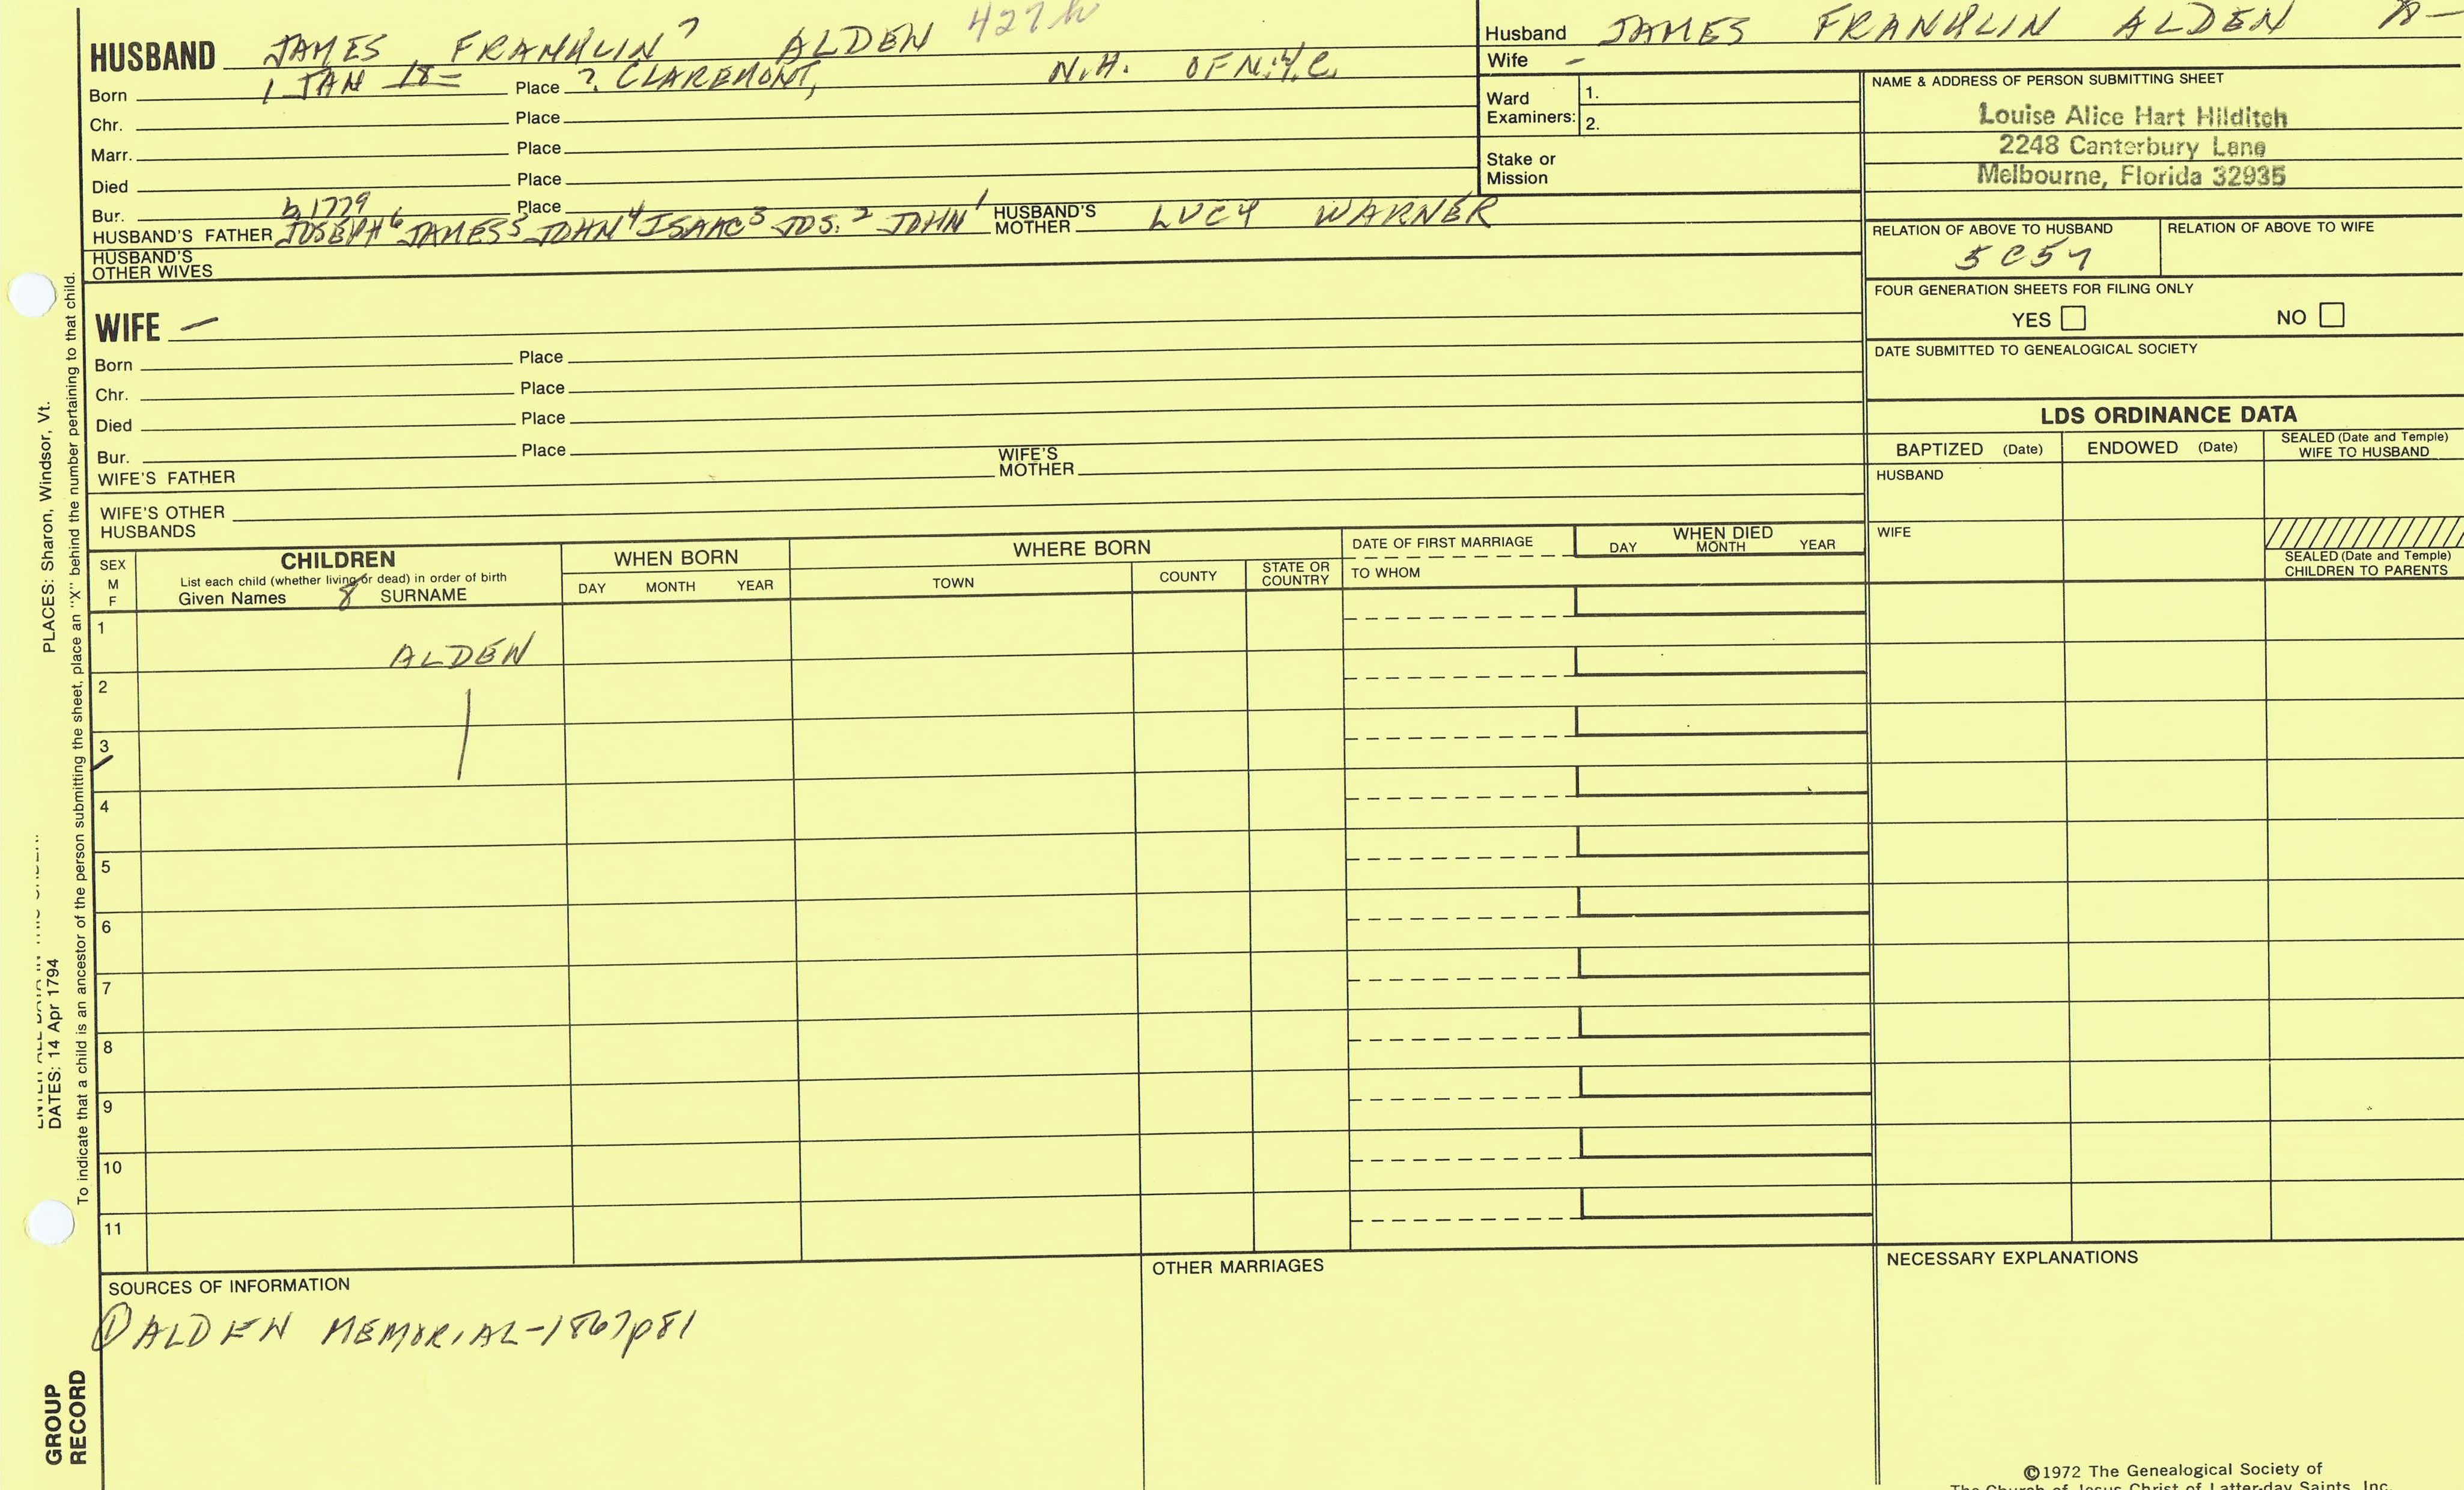 HUSBAND JAMES FRANKLIN 7 ALDEN 427h
Born 1 JAN 18= Place ? CLAREMONT, N.H. OF N.Y.C.
Chr. Place
Marr. Place
Died Place
Bur. Place
b 1779
HUSBAND'S FATHER JOSEPH 6 JAMES 5 JOHN 4 ISAAC 3 JOS. 2 JOHN 1 HUSBAND'S MOTHER LUCY WARNER
HUSBAND'S OTHER WIVES
WIFE –
Born Place
Chr. Place
Died Place
Bur. Place
WIFE'S FATHER WIFE'S MOTHER
WIFE'S OTHER HUSBANDS
Husband JAMES FRANKLIN ALDEN
Wife –
Ward Examiners: 1.
2.
Stake or Mission
NAME & ADDRESS OF PERSON SUBMITTING SHEET
Louise Alice Hart Hilditch
2248 Canterbury Lane
Melbourne, Florida 32935
RELATION OF ABOVE TO HUSBAND RELATION OF ABOVE TO WIFE
FOUR GENERATION SHEETS FOR FILING ONLY
YES NO
DATE SUBMITTED TO GENEALOGICAL SOCIETY
LDS ORDINANCE DATA
BAPTIZED (Date) ENDOWED (Date) SEALED (Date and Temple) WIFE TO HUSBAND
HUSBAND
WIFE
SEALED (Date and Temple) CHILDREN TO PARENTS
SEX M F
CHILDREN
List each child (whether living or dead) in order of birth
Given Names 8 SURNAME
WHEN BORN
DAY MONTH YEAR
WHERE BORN
TOWN COUNTY STATE OR COUNTRY
DATE OF FIRST MARRIAGE
TO WHOM
WHEN DIED
DAY MONTH YEAR
1
ALDEN
2
3
4
5
6
7
8
9
10
11
SOURCES OF INFORMATION
① ALDEN MEMORIAL-1867 p81
OTHER MARRIAGES
NECESSARY EXPLANATIONS
©1972 The Genealogical Society of
The Church of Jesus Christ of Latter-day Saints, Inc.
PLACES: Sharon, Windsor, Vt.
DATES: 14 Apr 1794
To indicate that a child is an ancestor of the person submitting the sheet, place an "X" behind the number pertaining to that child.
GROUP
RECORD